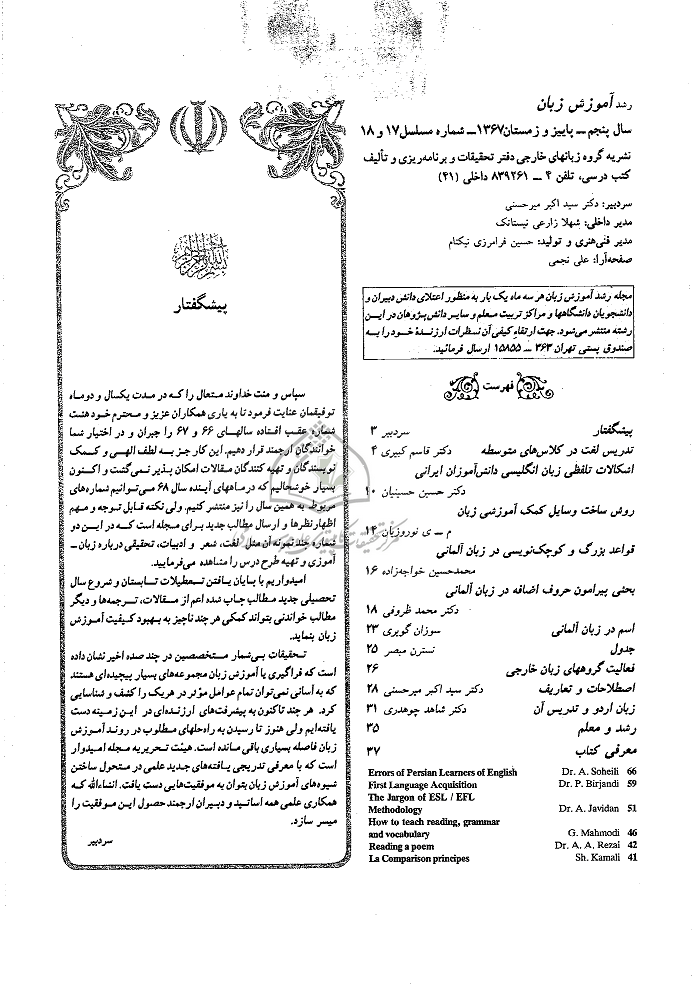 رشد آموزش زبان
سال پنجم ــ پاییز و زمستان ۱۳۶۷ ــ شماره مسلسل ۱۷ و ۱۸
نشریه گروه زبانهای خارجی دفتر تحقیقات و برنامه‌ریزی و تألیف
کتب درسی، تلفن ۴ ــ ۸۳۹۲۶۱ داخلی (۴۱)
سردبیر: دکتر سید اکبر میرحسنی
مدیر داخلی: شهلا زارعی نیستانک
مدیر فنی‌هنری و تولید: حسین فرامرزی نیکنام
صفحه‌آرا: علی نجمی
مجله رشد آموزش زبان هر سه ماه یک بار به منظور اعتلای دانش دبیران و
دانشجویان دانشگاهها و مراکز تربیت معلم و سایر دانش‌پژوهان در این
رشته منتشر می‌شود. جهت ارتقاء کیفی آن نظرات ارزندهٔ خود را به
صندوق پستی تهران ۳۶۳ ــ ۱۵۸۵۵ ارسال فرمائید.
فهرست
پیشگفتار سردبیر ۳
تدریس لغت در کلاس‌های متوسطه دکتر قاسم کبیری ۴
اشکالات تلفظی زبان انگلیسی دانش‌آموزان ایرانی
دکتر حسین حسینیان ۱۰
روش ساخت وسایل کمک آموزشی زبان
م ــ ی نوروزیان ۱۴
قواعد بزرگ و کوچک‌نویسی در زبان آلمانی
محمدحسین خواجه‌زاده ۱۶
بحثی پیرامون حروف اضافه در زبان آلمانی
دکتر محمد ظروفی ۱۸
اسم در زبان آلمانی سوزان گویری ۲۳
جدول نسترن مبصر ۲۵
فعالیت گروههای زبان خارجی ۲۶
اصطلاحات و تعاریف دکتر سید اکبر میرحسنی ۲۸
زبان اردو و تدریس آن دکتر شاهد چوهدری ۳۱
رشد و معلم ۳۵
معرفی کتاب ۳۷
Errors of Persian Learners of English Dr. A. Soheili 66
First Language Acquisition Dr. P. Birjandi 59
The Jargon of ESL / EFL
Methodology Dr. A. Javidan 51
How to teach reading, grammar
and vocabulary G. Mahmodi 46
Reading a poem Dr. A. A. Rezai 42
La Comparison principes Sh. Kamali 41
پیشگفتار
سپاس و منت خداوند متعال را که در مدت یکسال و دو ماه
توفیقمان عنایت فرمود تا به یاری همکاران عزیز و محترم خود هشت
شماره عقب افتاده سالهای ۶۶ و ۶۷ را جبران و در اختیار شما
خوانندگان ارجمند قرار دهیم. این کار جز به لطف الهی و کمک
نویسندگان و تهیه کنندگان مقالات امکان پذیر نمی‌گشت و اکنون
بسیار خوشحالیم که در ماههای آینده سال ۶۸ می‌توانیم شماره‌های
مربوط به همین سال را نیز منتشر کنیم. ولی نکته قابل توجه و مهم
اظهارنظرها و ارسال مطالب جدید برای مجله است که در این دو
شماره چند نمونه آن مثل لغت، شعر و ادبیات، تحقیقی درباره زبان‌ــ
آموزی و تهیه طرح درس را مشاهده می‌فرمایید.
امیدواریم با پایان یافتن تعطیلات تابستان و شروع سال
تحصیلی جدید مطالب چاپ شده اعم از مقالات، ترجمه‌ها و دیگر
مطالب خواندنی بتواند کمکی هر چند ناچیز به بهبود کیفیت آموزش
زبان بنماید.
تحقیقات بی‌شمار متخصصین در چند صده اخیر نشان داده
است که فراگیری یا آموزش زبان مجموعه‌های بسیار پیچیده‌ای هستند
که به آسانی نمی‌توان تمام عوامل مؤثر در هر یک را کشف و شناسایی
کرد. هر چند تاکنون به پیشرفت‌های ارزنده‌ای در این زمینه دست
یافته‌ایم ولی هنوز تا رسیدن به راه‌حلهای مطلوب در روند آموزش
زبان فاصله بسیاری باقی مانده است. هیئت تحریریه مجله امیدوار
است که با معرفی تدریجی یافته‌های جدید علمی در متحول ساختن
شیوه‌های آموزش زبان بتوان به موفقیت‌هایی دست یافت. انشاءالله که
همکاری علمی همه اساتید و دبیران ارجمند حصول این موفقیت را
میسر سازد.
سردبیر